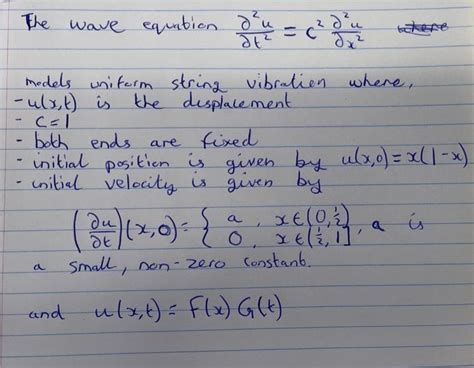 The wave equation ∂²u/∂t² = c² ∂²u/∂x² where
models uniform string vibration where,
- u(x,t) is the displacement
- c=1
- both ends are fixed
- initial position is given by u(x,0)=x(1-x)
- initial velocity is given by
(∂u/∂t)(x,0)= { a, x∈(0,½]
0, x∈(½,1] , a is
a small, non-zero constant.
and u(x,t)= F(x)G(t)